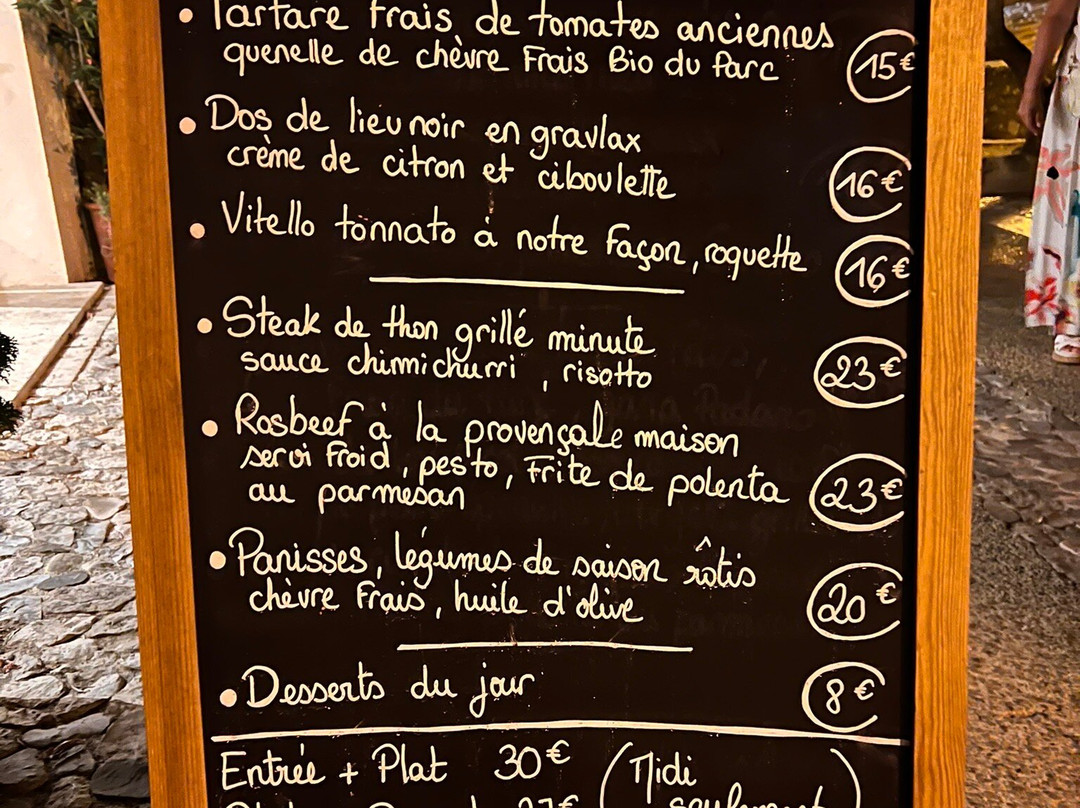 • Tartare frais de tomates anciennes
quenelle de chèvre Frais Bio du Parc 15€
• Dos de lieu noir en gravlax
crème de citron et ciboulette 16€
• Vitello tonnato à notre façon, roquette 16€
• Steak de thon grillé minute
sauce chimmichurri, risotto 23€
• Rosbeef à la provençale maison
servi froid, pesto, Frite de polenta
au parmesan 23€
• Panisses, légumes de saison rôtis
chèvre Frais, huile d'olive 20€
• Desserts du jour 8€
Entrée + Plat 30€ (Midi
seulement)